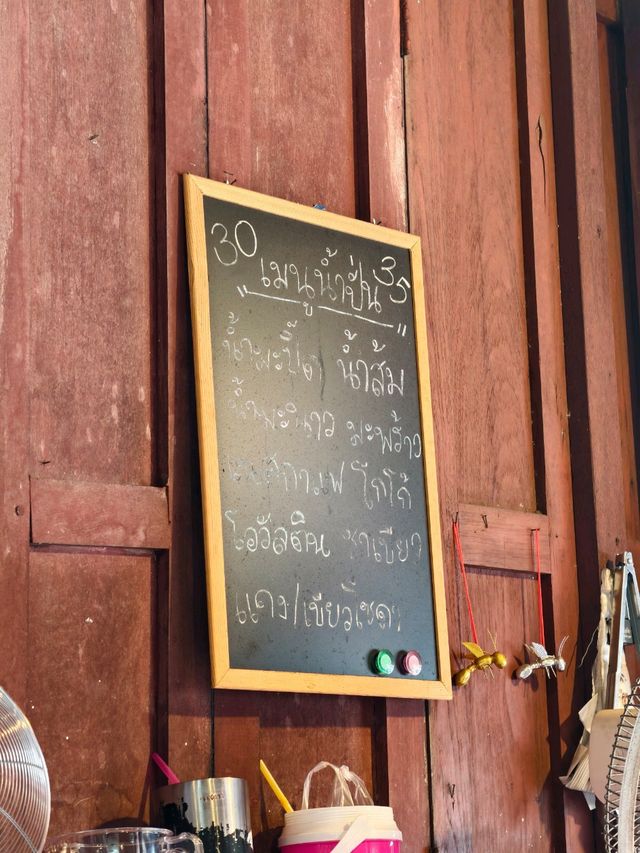 30 35
"เมนูน้ำปั่น"
น้ำมะปี๊ด น้ำส้ม
น้ำมะนาว มะพร้าว
กาแฟ โกโก้
โอวัลติน ชาเขียว
แดง/เขียวโซดา